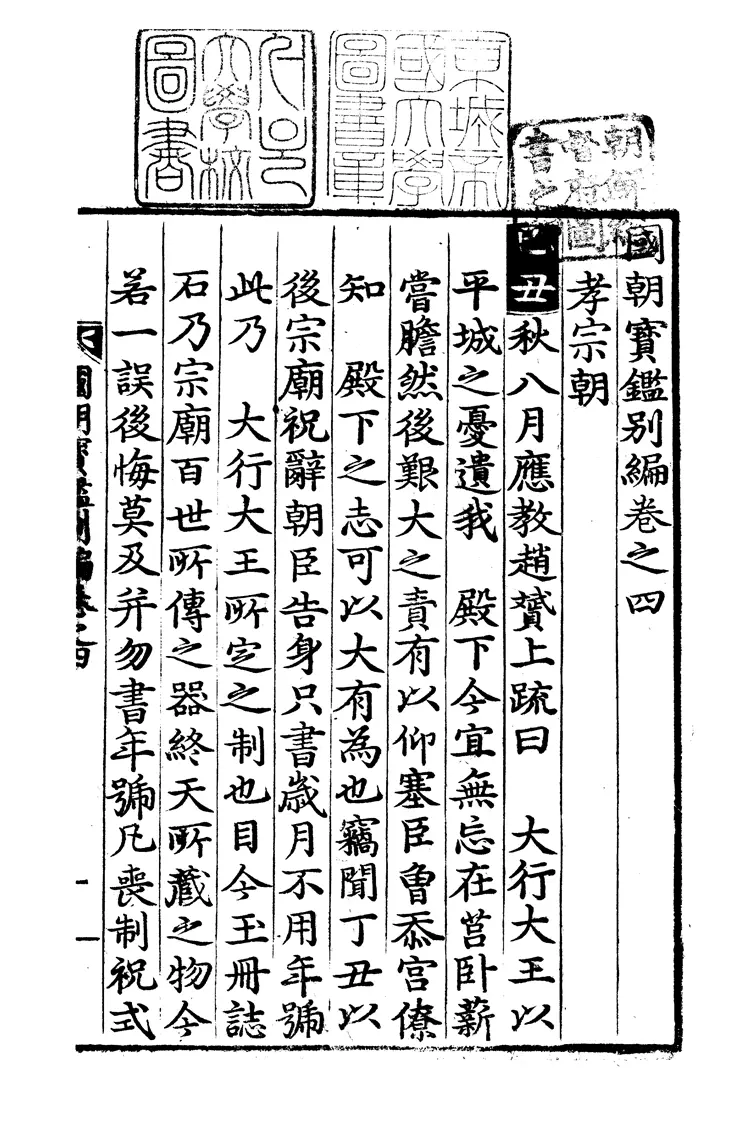 國朝寶鑑別編卷之四
孝宗朝
己丑秋八月應教趙贇上疏曰 大行大王以
平城之憂遺我 殿下今宜無忘在莒臥薪
嘗膽然後艱大之責有以仰塞臣曾忝宮僚
知 殿下之志可以大有為也竊聞丁丑以
後宗廟祝辭朝臣告身只書歲月不用年號
此乃 大行大王所定之制也目今玉冊誌
石乃宗廟百世所傳之器終天所藏之物今
若一誤後悔莫及并勿書年號凡喪制祝式
國朝寶鑑別編卷之四
一
京城帝
國大學
圖書章
大學校
圖書
朝鮮總
督府圖
書之